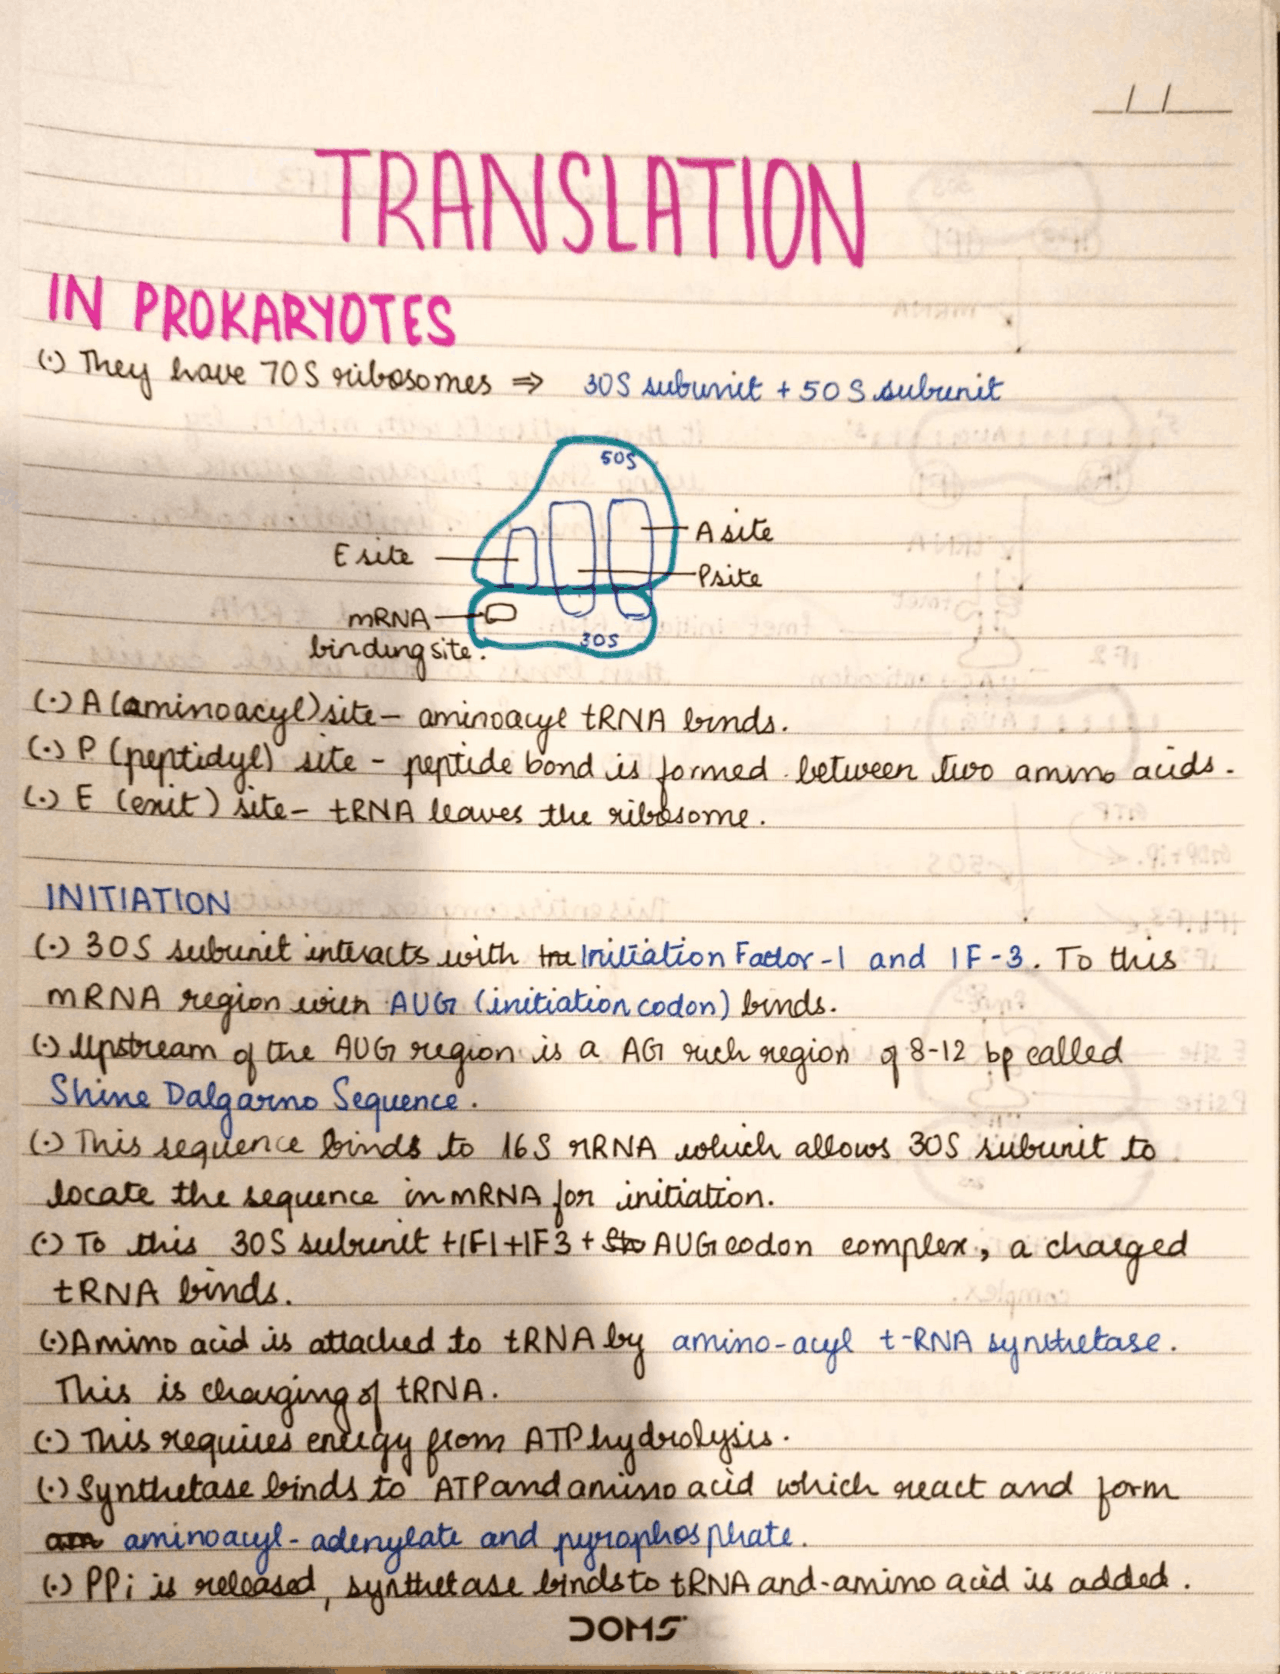 TRANSLATION
IN PROKARYOTES
(·) They have 70S ribosomes ⇒ 30S subunit + 50S subunit
50S
A site
E site
P site
mRNA
binding site.
30S
(·) A (aminoacyl) site – aminoacyl tRNA binds.
(·) P (peptidyl) site – peptide bond is formed between two amino acids.
(·) E (exit) site – tRNA leaves the ribosome.
INITIATION
(·) 30S subunit interacts with Initiation Factor-1 and IF-3. To this
mRNA region with AUG (initiation codon) binds.
(·) Upstream of the AUG region is a AG rich region of 8-12 bp called
Shine Dalgarno Sequence.
(·) This sequence binds to 16S rRNA which allows 30S subunit to
locate the sequence in mRNA for initiation.
(·) To this 30S subunit +IF1+IF3 + AUG codon complex, a charged
tRNA binds.
(·) Amino acid is attached to tRNA by amino-acyl t-RNA synthetase.
This is charging of tRNA.
(·) This requires energy from ATP hydrolysis.
(·) Synthetase binds to ATP and amino acid which react and form
aminoacyl-adenylate and pyrophosphate.
(·) PPi is released, synthetase binds to tRNA and amino acid is added.
DOMS